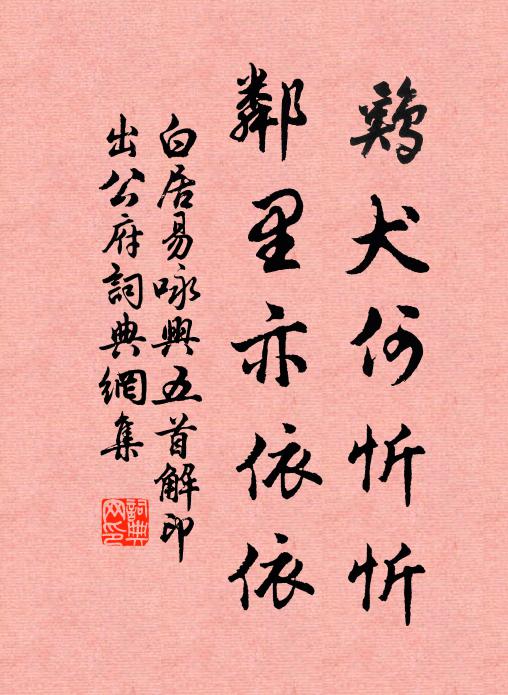 鷄犬何忻忻
鄰里亦依依
白居易咏興五首解印
出公府詞典網集
詞典
网印